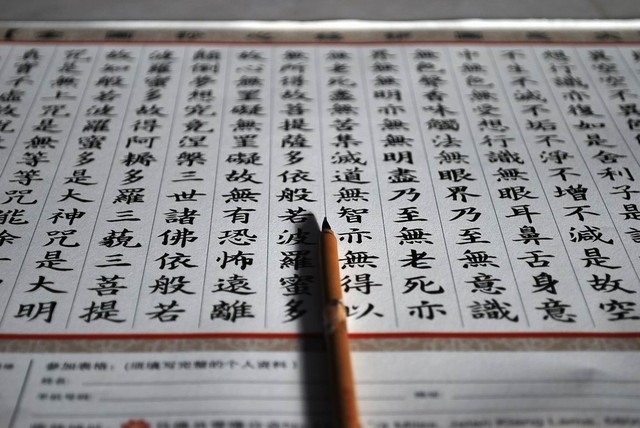 異空空不
想行識亦復如是舍利子是
不生不滅不垢不淨不增不減是故空
中無色無受想行識無眼耳鼻舌身意
無色聲香味觸法無眼界乃至無意識
界無無明亦無無明盡乃至無老死亦
無老死盡無苦集滅道無智亦無得以
無所得故菩提薩埵依般若波羅蜜多
故心無罣礙無罣礙故無有恐怖遠離
顛倒夢想究竟涅槃三世諸佛依般若
波羅蜜多故得阿耨多羅三藐三菩提
故知般若波羅蜜多是大神咒是大明
咒是無上咒是無等等咒能除
真實不虛故說
参加表格：(须填写完整的个人资料)
姓名：
手机号码：